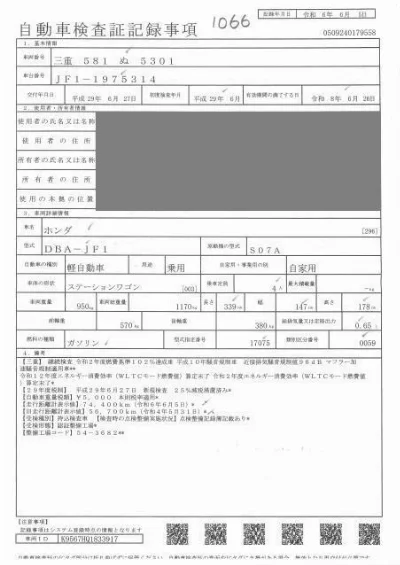 自動車検査証記録事項
1066
記録年月日 令和 6年 6月 5日
0509240179558
1. 基本情報
車両番号 三重 581 ぬ 5301
車台番号 JF1-1975314
交付年月日 平成 29年 6月 27日 初度検査年月 平成 29年 6月 有効期間の満了する日 令和 8年 6月 26日
2. 使用者・所有者情報
使用者の氏名又は名称
使用者の住所
所有者の氏名又は名称
所有者の住所
使用の本拠の位置
3. 車両詳細情報
車名 ホンダ [296]
型式 DBA-JF1 原動機の型式 S07A
自動車の種別 軽自動車 用途 乗用 自家用・事業用の別 自家用
車体の形状 ステーションワゴン [003] 乗車定員 4人 最大積載量 -kg
車両重量 950kg 車両総重量 1170kg 長さ 339cm 幅 147cm 高さ 178cm
前軸重 570kg 後軸重 380kg 総排気量又は定格出力 0.65L
燃料の種類 ガソリン 型式指定番号 17075 類別区分番号 0059
4. 備考
[三重] 継続検査 令和2年度燃費基準102%達成車 平成10年騒音規制車 近接排気騒音規制値98dB マフラー加
速騒音規制適用車**
令和12年度エネルギー消費効率(WLTCモード燃費値)算定未了 令和2年度エネルギー消費効率(WLTCモード燃費値
)算定未了*
[29年度税制] 平成29年6月27日 新規検査 25%減税措置済み*
[自動車重量税額] ¥5,000 本則税率適用*
[走行距離計表示値] 74,400km(令和6年6月5日)*
[旧走行距離計表示値] 56,700km(令和4年5月31日)*
[受検種別] 持込検査車 [検査時の点検整備実施状況] 点検整備記録簿記載あり*
[受検形態] 認証整備工場*
[整備工場コード] 54-3682**
[注意事項]
記録事項はシステム登録時点の情報となります
車両ID K9567HQ1833917